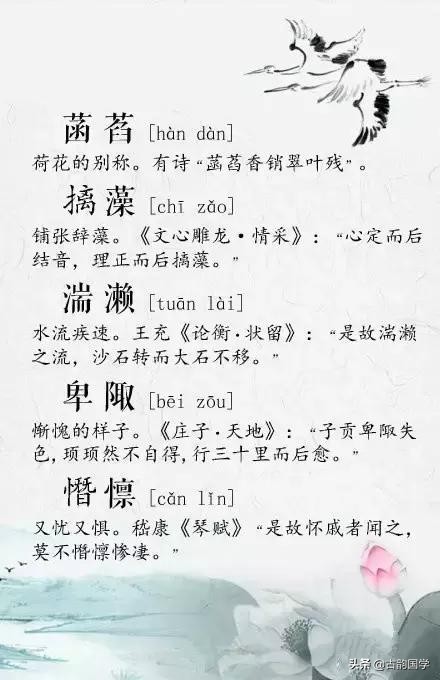 菡萏 [hàn dàn]
荷花的别称。有诗“菡萏香销翠叶残”。
摛藻 [chī zǎo]
铺张辞藻。《文心雕龙·情采》：“心定而后
结音，理正而后摛藻。”
湍濑 [tuān lài]
水流疾速。王充《论衡·状留》：“是故湍濑
之流，沙石转而大石不移。”
卑陬 [bēi zōu]
惭愧的样子。《庄子·天地》：“子贡卑陬失
色,顼顼然不自得,行三十里而后愈。”
憯懔 [cǎn lǐn]
又忧又惧。嵇康《琴赋》“是故怀戚者闻之，
莫不憯懔惨凄。”
头条 @古韵国学